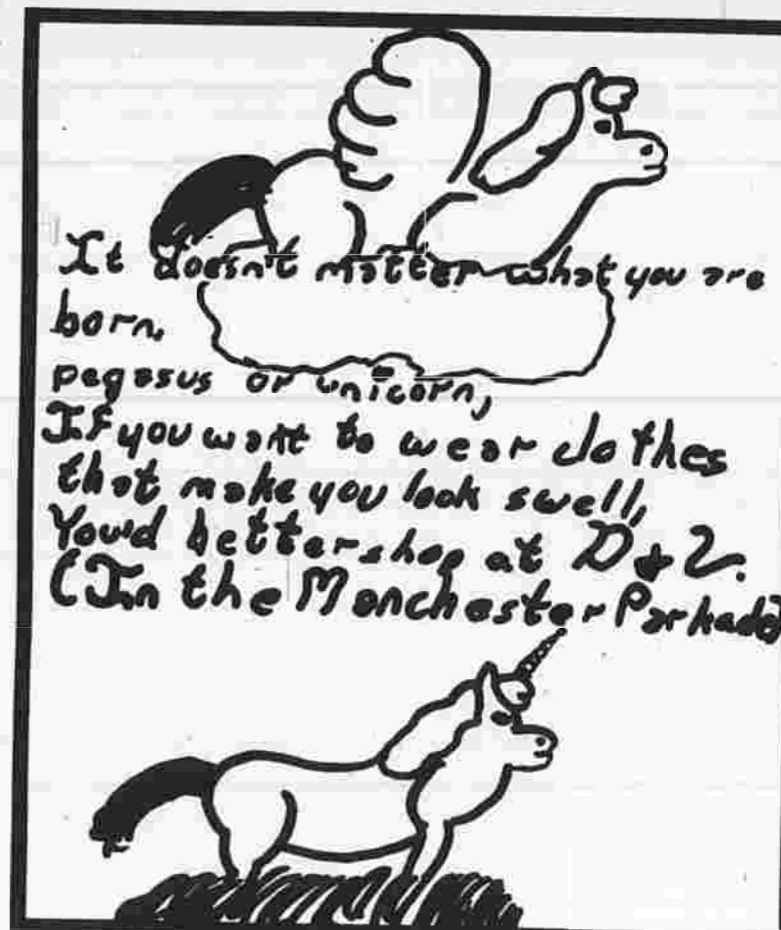 It doesn't matter what you are
born,
pegasus or unicorn,
If you want to wear clothes
that make you look swell,
You'd better shop at D & L.
(In the Manchester Parkade)